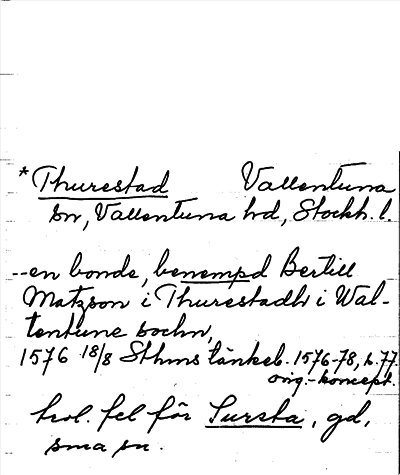 * Thurestad Vallentuna
sn, Vallentuna hd, Stockh. l.
--en bonde, benempd Bertill
Matzson i Thurestadh i Wal-
lentune sochn,
1576 18/8 Sthms tänkeb. 1576-78, s. 77.
orig.-koncept.
trol. fel för Sursta, gd,
sma sn.